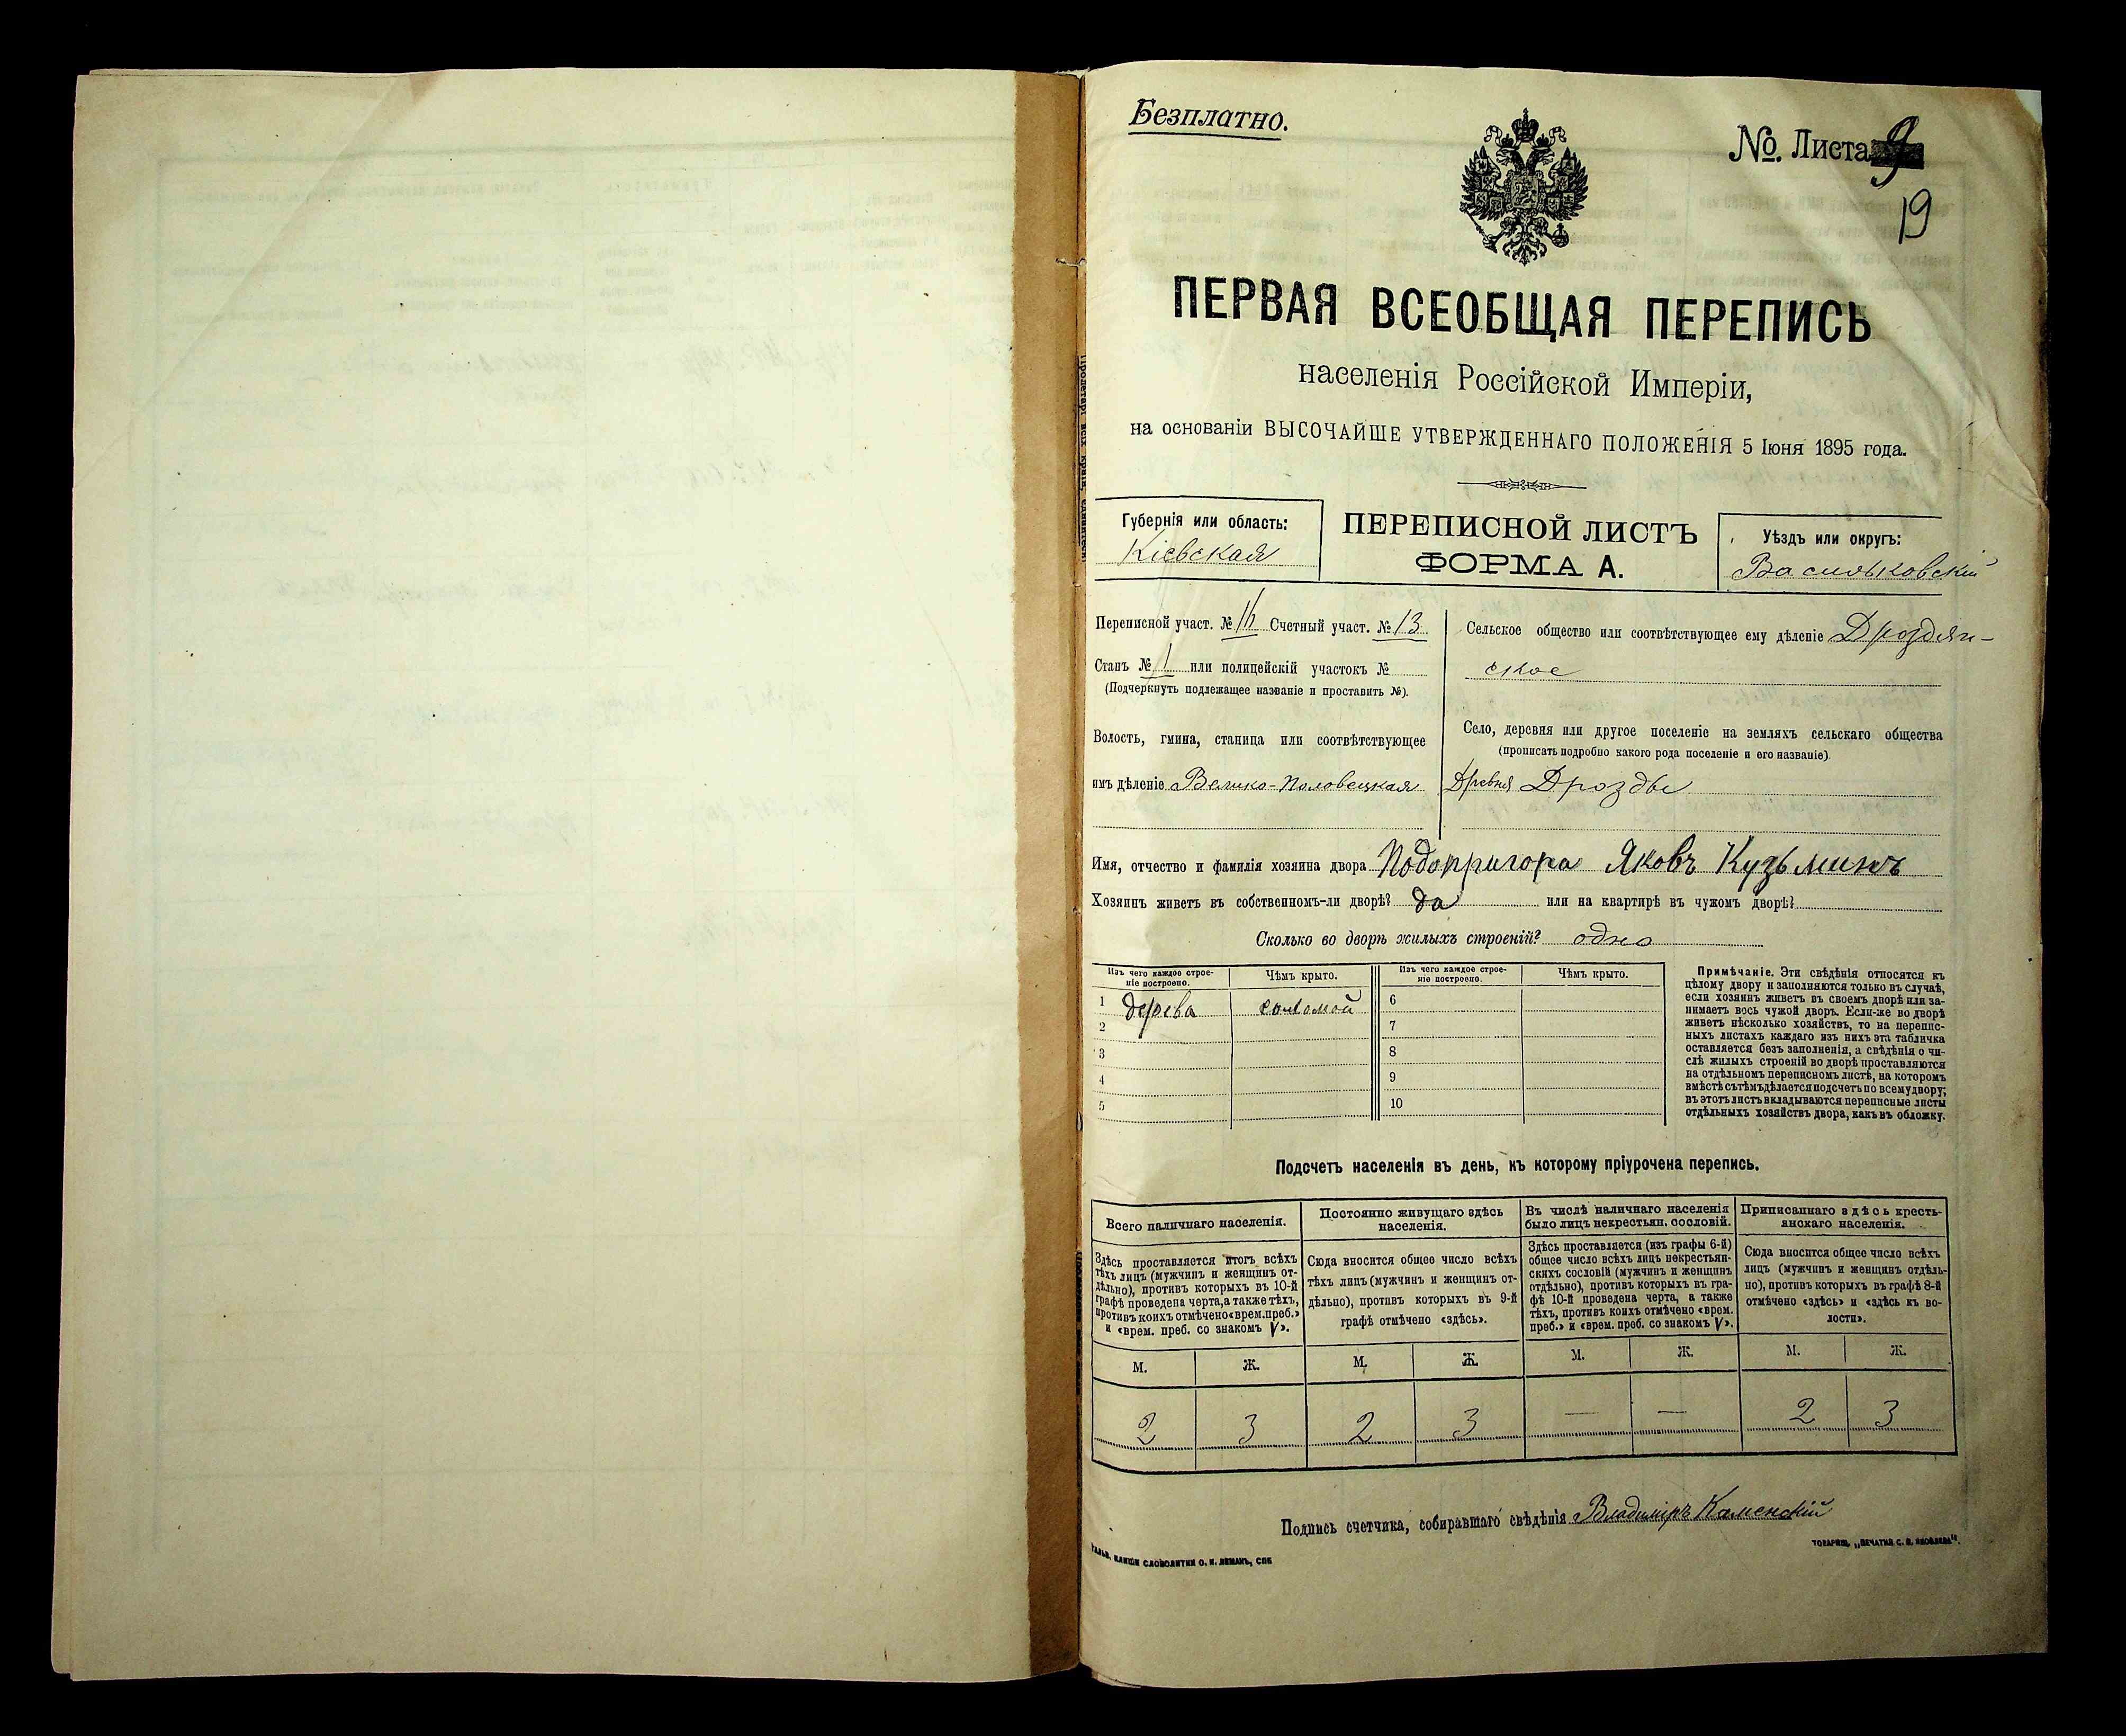 Безплатно.
№ Листа 9
19
ПЕРВАЯ ВСЕОБЩАЯ ПЕРЕПИСЬ
населенія Россійской Имперіи,
на основаніи ВЫСОЧАЙШЕ УТВЕРЖДЕННАГО ПОЛОЖЕНІЯ 5 Іюня 1895 года.
Губернія или область:
Кіевская
ПЕРЕПИСНОЙ ЛИСТЪ
ФОРМА А.
Уѣздъ или округъ:
Васильковскій
Переписной участ. № 16 Счетный участ. № 13
Станъ № 1 или полицейскій участокъ №
(Подчеркнуть подлежащее названіе и проставить №).
Волость, гмина, станица или соотвѣтствующее
имъ дѣленіе Велико-Половецкая
Сельское общество или соотвѣтствующее ему дѣленіе Дроздян-
ское
Село, деревня или другое поселеніе на земляхъ сельскаго общества
(прописать подробно какого рода поселеніе и его названіе)
Древня Дрозды
Имя, отчество и фамилія хозяина двора Подопригора Яковъ Кузьминъ
Хозяинъ живетъ въ собственномъ-ли дворѣ? да или на квартирѣ въ чужомъ дворѣ?
Сколько во дворѣ жилыхъ строеній? одно
Изъ чего каждое строе-
ніе построено.
Чѣмъ крыто.
Изъ чего каждое строе-
ніе построено.
Чѣмъ крыто.
1 дерева соломой 6
2 7
3 8
4 9
5 10
Примѣчаніе. Эти свѣдѣнія относятся къ
цѣлому двору и заполняются только въ случаѣ,
если хозяинъ живетъ въ своемъ дворѣ или за-
нимаетъ весь чужой дворъ. Если-же во дворѣ
живетъ нѣсколько хозяйствъ, то на перепис-
ныхъ листахъ каждаго изъ нихъ эта табличка
оставляется безъ заполненія, а свѣдѣнія о чи-
слѣ жилыхъ строеній во дворѣ проставляются
на отдѣльномъ переписномъ листѣ, на которомъ
вмѣстѣ съ тѣмъ дѣлается подсчетъ по всему двору;
въ этотъ листъ вкладываются переписные листы
отдѣльныхъ хозяйствъ двора, какъ въ обложку.
Подсчетъ населенія въ день, къ которому пріурочена перепись.
Всего наличнаго населенія.
Здѣсь проставляется итогъ всѣхъ
тѣхъ лицъ (мужчинъ и женщинъ от-
дѣльно), противъ которыхъ въ 10-й
графѣ проведена черта, а также тѣхъ,
противъ коихъ отмѣчено «врем. преб.»
и «врем. преб. со знакомъ V».
Постоянно живущаго здѣсь
населенія.
Сюда вносится общее число всѣхъ
тѣхъ лицъ (мужчинъ и женщинъ от-
дѣльно), противъ которыхъ въ 9-й
графѣ отмѣчено «здѣсь».
Въ числѣ наличнаго населенія
было лицъ некрестьян. сословій.
Здѣсь проставляется (изъ графы 6-й)
общее число всѣхъ лицъ некрестьян-
скихъ сословій (мужчинъ и женщинъ
отдѣльно), противъ которыхъ въ гра-
фѣ 10-й проведена черта, а также
тѣхъ, противъ коихъ отмѣчено «врем.
преб.» и «врем. преб. со знакомъ V».
Приписаннаго здѣсь кресть-
янскаго населенія.
Сюда вносится общее число всѣхъ
лицъ (мужчинъ и женщинъ отдѣль-
но), противъ которыхъ въ графѣ 8-й
отмѣчено «здѣсь» и «здѣсь къ во-
лости».
М. Ж. М. Ж. М. Ж. М. Ж.
2 3 2 3 — — 2 3
Подпись счетчика, собиравшаго свѣдѣнія Владиміръ Каменскій
КЛИШЕ СЛОВОЛИТНИ О. И. ЛЕМАНЪ, СПБ
ТОВАРИЩ. „ПЕЧАТНЯ С. П. ЯКОВЛЕВА“.